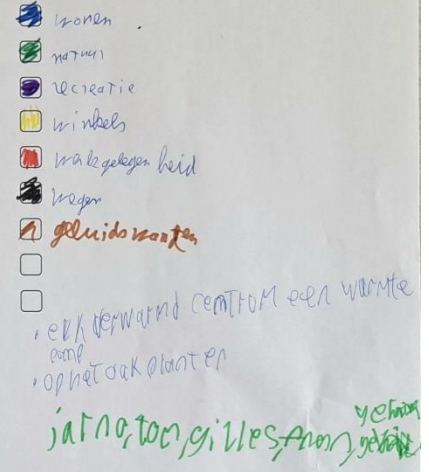 wonen
natuur
recreatie
winkels
werkgelegenheid
wegen
geluidswanten
elk verwarmd centrom een warmte
pomp
op het dak planten
jarno, tom, gilles,